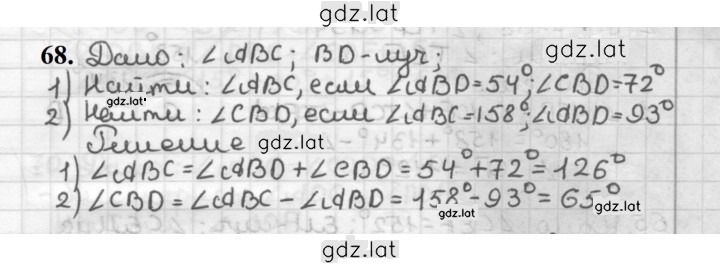 gdz.lat
68. Дано: ∠ABC; BD-луч; gdz.lat
1) Найти: ∠ABC, если ∠ABD=54°; ∠CBD=72°
gdz.lat
2) Найти: ∠CBD, если ∠ABC=158°; ∠ABD=93°
Решение gdz.lat
1) ∠ABC = ∠ABD + ∠CBD = 54° + 72° = 126°
2) ∠CBD = ∠ABC - ∠ABD = 158° - 93° = 65°
gdz.lat gdz.lat
gdz.lat